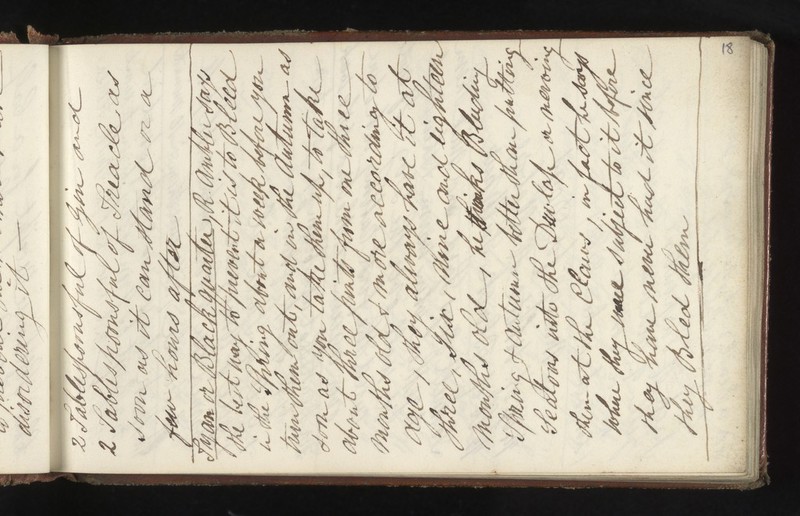 disordering it —
2 Tablespoonsful of Gin and
2 Tablespoonsful of Treacle as
soon as it can stand or a
few hours after
or Black quarter R. Ankler says
the best way to prevent it is to Bleed
in the Spring about a week before you
turn them out, and in the Autumn as
soon as you take them up, to take
about three pints from one three
months old & more according to
age, they always have it at
three, Six, Nine and Eighteen
months old, he thinks Bleeding
Spring & Autumn better than putting
Seatons into the Dewlap or nerving
them at the Claws in fact he says
where they were subject to it before
they have never had it since
they Bled them
18